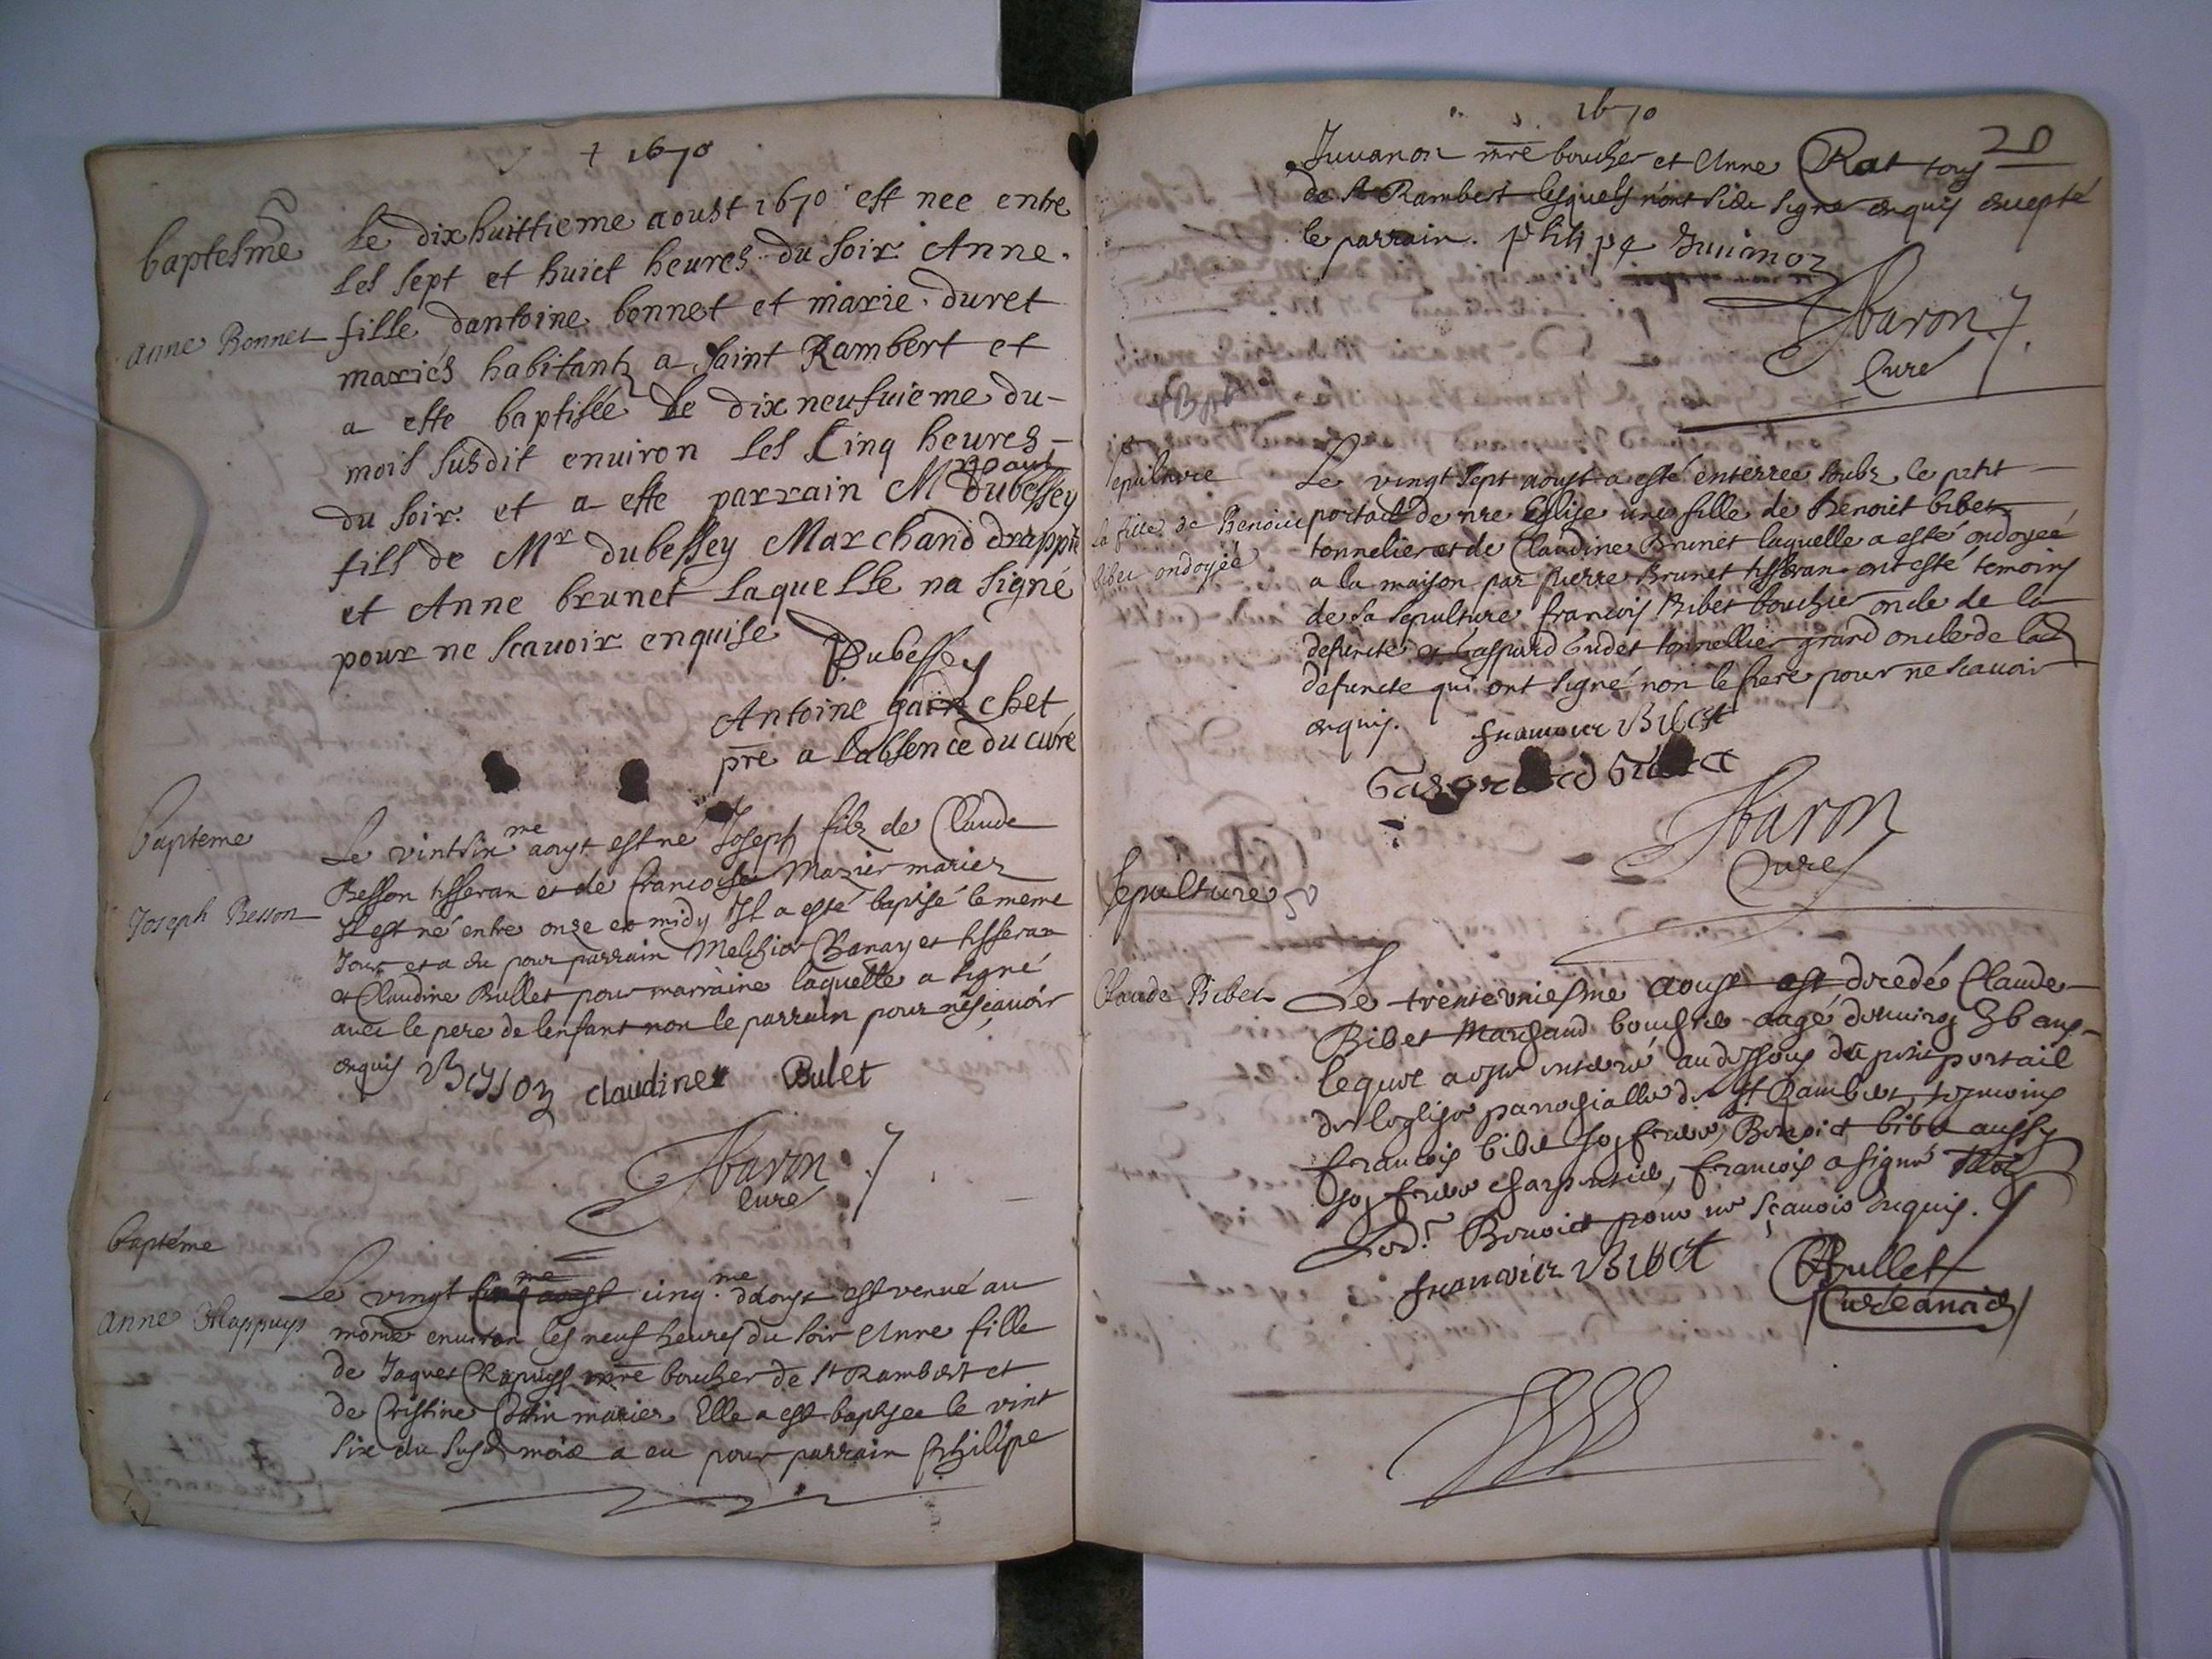 + 1670
baptesme
anne Bonnet
Le dixhuittieme aoust 1670 est nee entre
les sept et huict heures du soir Anne.
fille dantoine bonnet et marie duret
mariés habitantz a saint Rambert et
a este baptisée Le dix neufuieme du-
mois susdit enuiron les Cinq heures-
du soir. et a este parrain M dubessey
fils de Mr dubessey Marchand drappie
et Anne brunet laquelle na signé
pour ne scauoir enquise
Dubessey
Antoine
pre a labsence du curé
bapteme
Joseph Besson
Le vintsixme aoust est né Joseph filz de Claude
Besson tisseran et de francoise Mazier mariez
Il est né entre onze et midy Il a esté baptisé le meme
Jour et a eu pour parrain Melchior Banay et tisseran
et Claudine Bullet pour marraine laquelle a signé
auec le pere de lenfant non le parrain pour nescauoir
enquis Besson claudine Bulet
Baron
Curé
bapteme
anne Chappuys
Le vingt cinq.me daoust est venue au
monde enuiron les neuf heures du soir Anne fille
de Jaques Chapuys mre boucher de St Rambert et
de Cristine mariez Elle a est baptisee le vint
six du susd mois a eu pour parrain philipe
1670
20
Juuanon mre boucher et Anne Rat tous
de St Rambert lesquels nont signé enquis excepté
le parrain. philipe Juuanon
Baron
Curé
sepulture
la fille de Benoit
bibet ondoyée
Le vingt sept aoust a esté enterree soubz le petit
portail de nre Eglise une fille de Benoit bibet
tonnelier et de Claudine Brunet laquelle a esté ondoyée
a la maison par pierre Brunet tisseran ont esté temoins
de sa sepulture francois Bibet bouchier oncle de la
defuncte et Gaspard Gudet tonnellier grand oncle de lad
defuncte qui ont signé non le pere pour ne scauoir
enquis. francois Bibet
Baron
Curé
sepulture
Claude Bibet
Le trente uniesme aoust est decedé Claude
Bibet Marchand bouchier aagé denuiron 36 ans
lequel a esté enterré au dessous du petit portail
de leglise parrochialle de St Rambert, tesmoins
francois bibet son frere, Benoict bibet aussy
son frere charpentier, francois a signé non
led. Benoict pour ne scauoir enquis.
francois Bibet Bullet